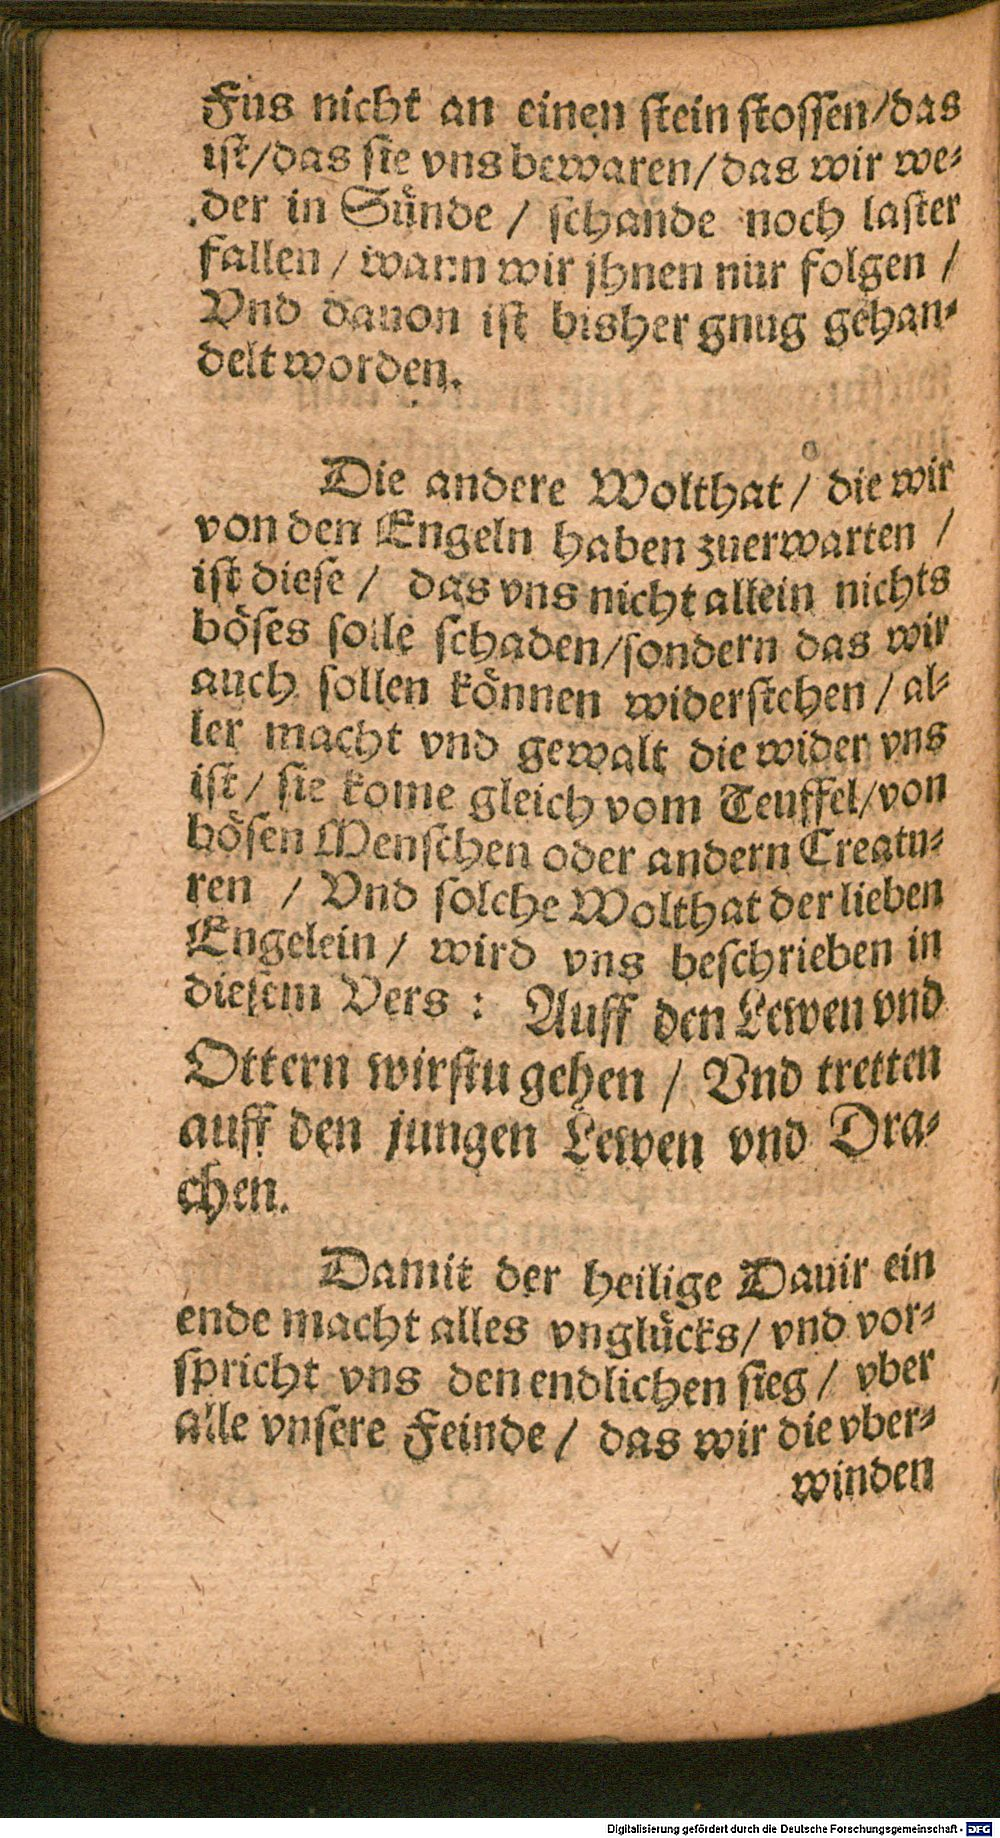 Fus nicht an einen stein stossen/das
ist/das sie vns bewaren/das wir we-
der in Sünde / schande noch laster
fallen / wann wir jhnen nur folgen /
Vnd dauon ist bisher gnug gehan-
delt worden.
Die andere Wolthat / die wir
von den Engeln haben zuerwarten /
ist diese / das vns nicht allein nichts
böses solle schaden/sondern das wir
auch sollen können widerstehen / al-
ler macht vnd gewalt die wider vns
ist/ sie kome gleich vom Teuffel/von
bösen Menschen oder andern Creatu-
ren / Vnd solche Wolthat der lieben
Engelein / wird vns beschrieben in
diesem Vers : Auff den Lewen vnd
Ottern wirstu gehen / Vnd tretten
auff den jungen Lewen vnd Dra-
chen.
Damit der heilige Dauit ein
ende macht alles vnglücks/ vnd vor-
spricht vns den endlichen sieg / vber
alle vnsere Feinde / das wir die vber-
winden
Digitalisierung gefördert durch die Deutsche Forschungsgemeinschaft - DFG